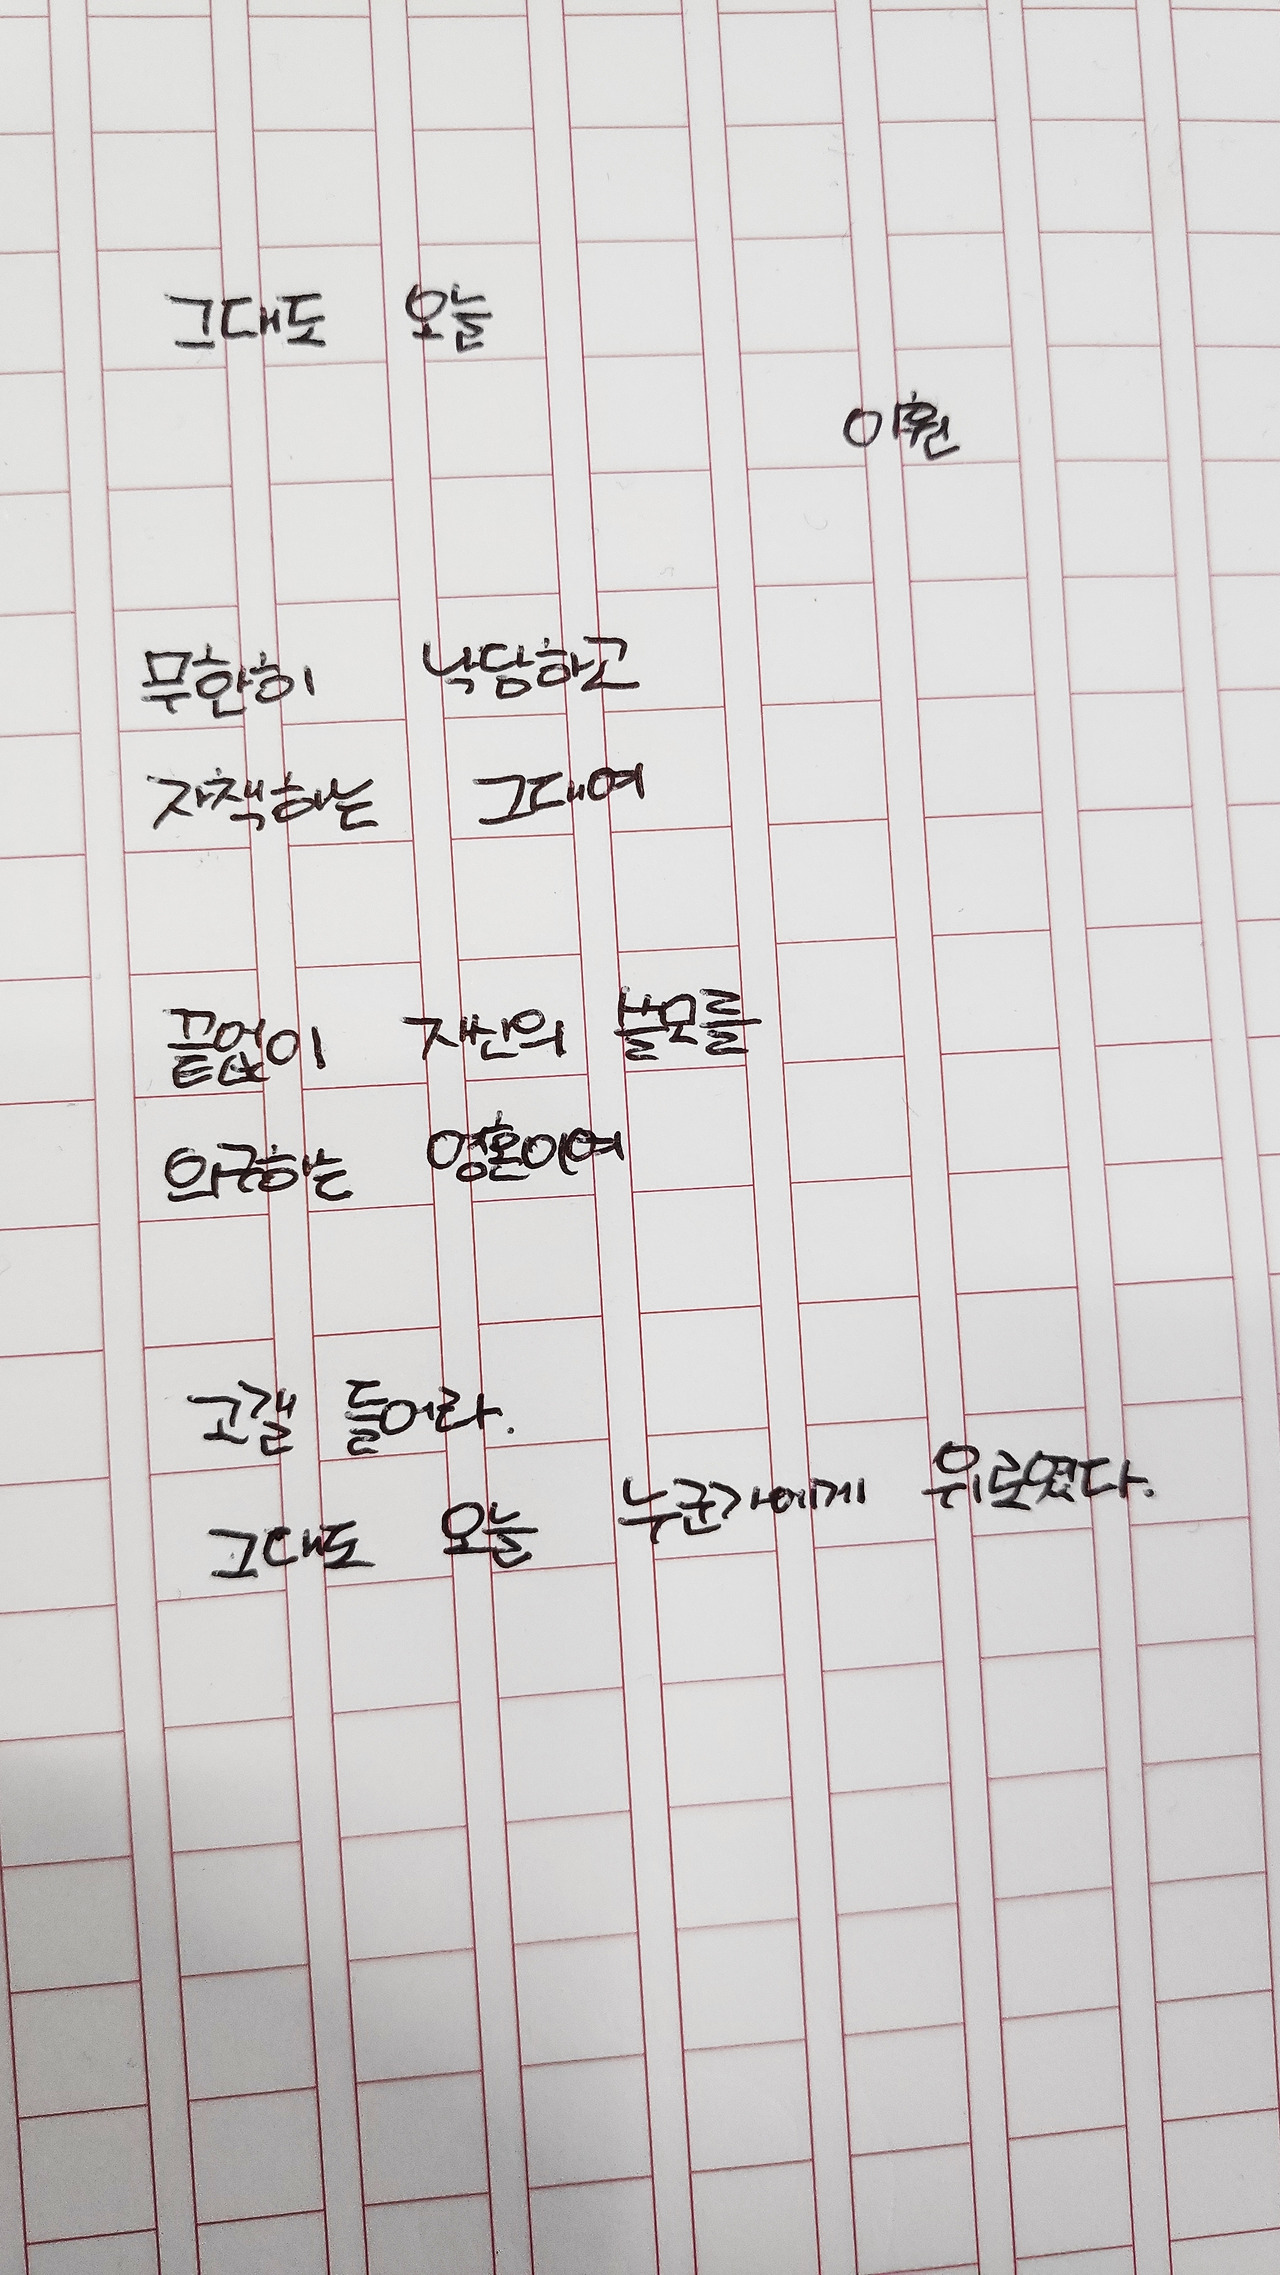 그대도 오늘
이훤
무한히 낙담하고
자책하는 그대여
끝없이 자신의 쓸모를
의구하는 영혼이여
고갤 들어라.
그대도 오늘 누군가에게 위로였다.